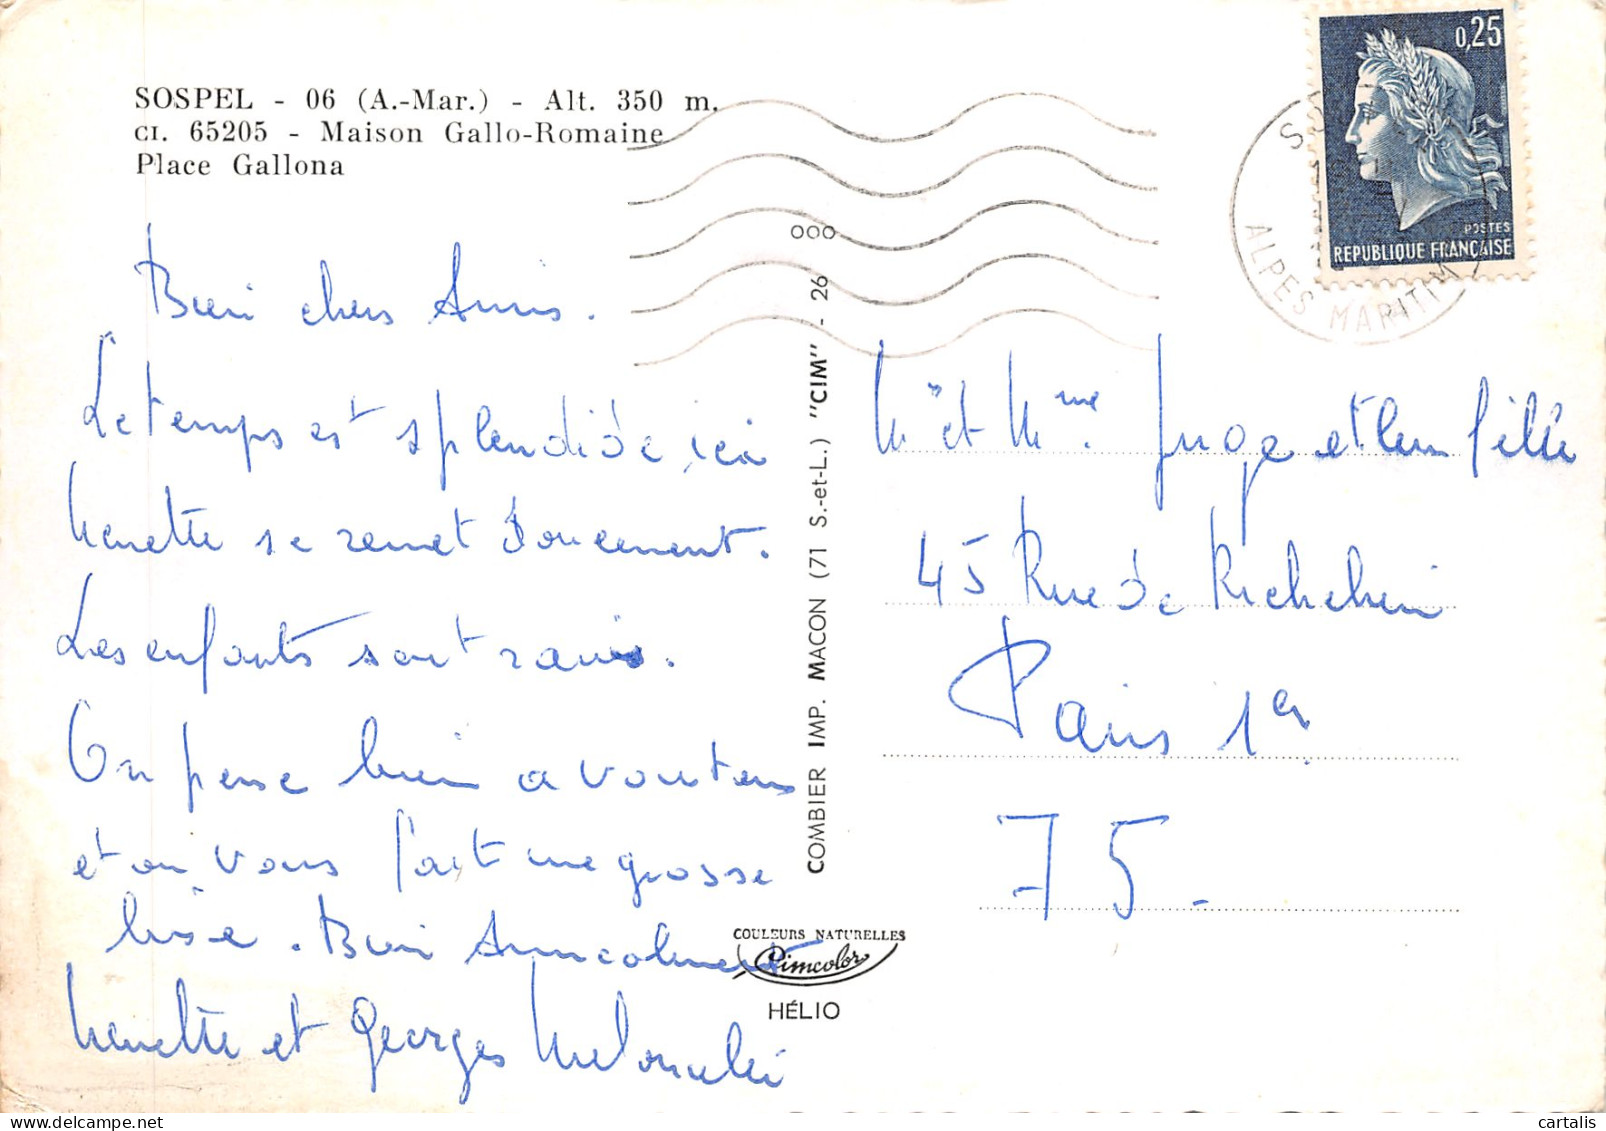 SOSPEL - 06 (A.-Mar.) - Alt. 350 m.
CI. 65205 - Maison Gallo-Romaine
Place Gallona
Bien chers Amis.
Le temps est splendide ici
se remet doucement.
Les enfants sont ravis.
On pense bien a vous tous
et on vous fait une grosse
bise. Bien Amicalement
et Georges
COMBIER IMP. MACON (71 S.-et-L.) "CIM" - 26
000
COULEURS NATURELLES
Cimcolor
HÉLIO
0,25
POSTES
REPUBLIQUE FRANÇAISE
ALPES MARITIM
Mr et Mme. Juge et leur fille
45 Rue de Richelieu
Paris 1er
75.
cartalis
delcampe.net